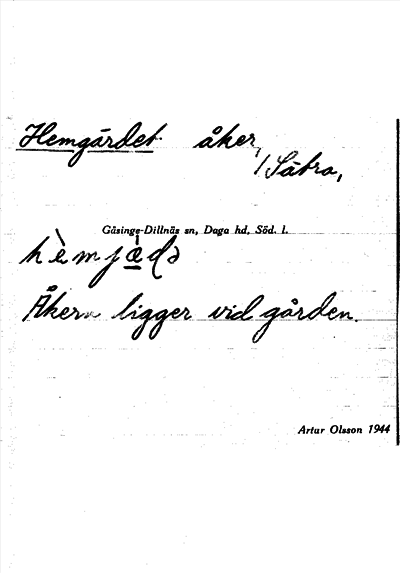 Hemgärdet åker,
/Sätra,
Gåsinge-Dillnäs sn, Daga hd, Söd. l.
hèmjæ̀ḍə
Åkern ligger vid gården.
Artur Olsson 1944